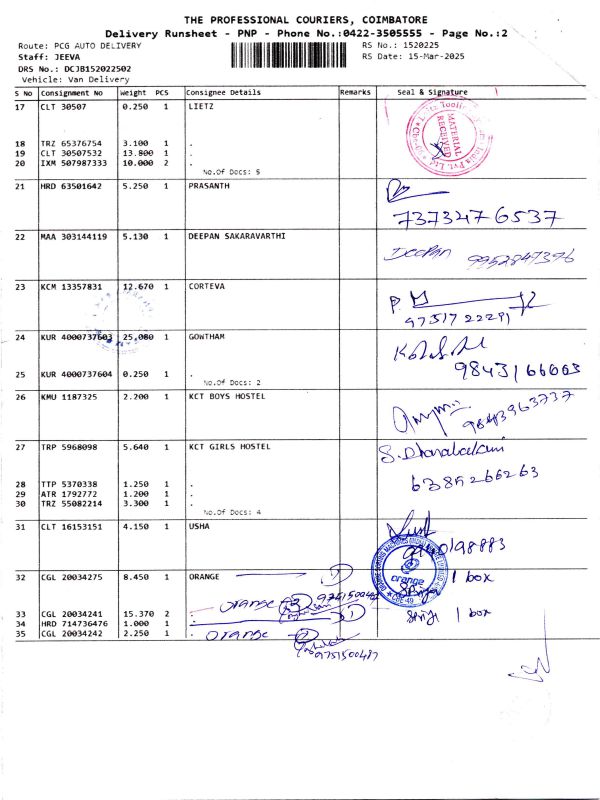 THE PROFESSIONAL COURIERS, COIMBATORE
Delivery Runsheet - PNP - Phone No.:0422-3505555 - Page No.:2
Route: PCG AUTO DELIVERY RS No.: 1520225
Staff: JEEVA RS Date: 15-Mar-2025
DRS No.: DCJB152022502
Vehicle: Van Delivery
S No Consignment No Weight PCS Consignee Details Remarks Seal & Signature
17 CLT 30507 0.250 1 LIETZ
MATERIAL
RECEIVED
18 TRZ 65376754 3.100 1 .
19 CLT 30507532 13.800 1 .
20 IXM 507987333 10.000 2 .
No.Of Docs: 5
21 HRD 63501642 5.250 1 PRASANTH
7373276537
22 MAA 303144119 5.130 1 DEEPAN SAKARAVARTHI
Deepan 9952847396
23 KCM 13357831 12.670 1 CORTEVA
9751722291
24 KUR 4000737603 25.080 1 GOWTHAM
9843166663
25 KUR 4000737604 0.250 1 .
No.Of Docs: 2
26 KMU 1187325 2.200 1 KCT BOYS HOSTEL
9843963737
27 TRP 5968098 5.640 1 KCT GIRLS HOSTEL
S. Dhanabalan
6385266263
28 TTP 5370338 1.250 1 .
29 ATR 1792772 1.200 1 .
30 TRZ 55082214 3.300 1 .
No.Of Docs: 4
31 CLT 16153151 4.150 1 USHA
32 CGL 20034275 8.450 1 ORANGE 1 box
orange
CBE-49
orange
33 CGL 20034241 15.370 2 . 1 box
34 HRD 714736476 1.000 1 .
35 CGL 20034242 2.250 1 . orange
9751500487